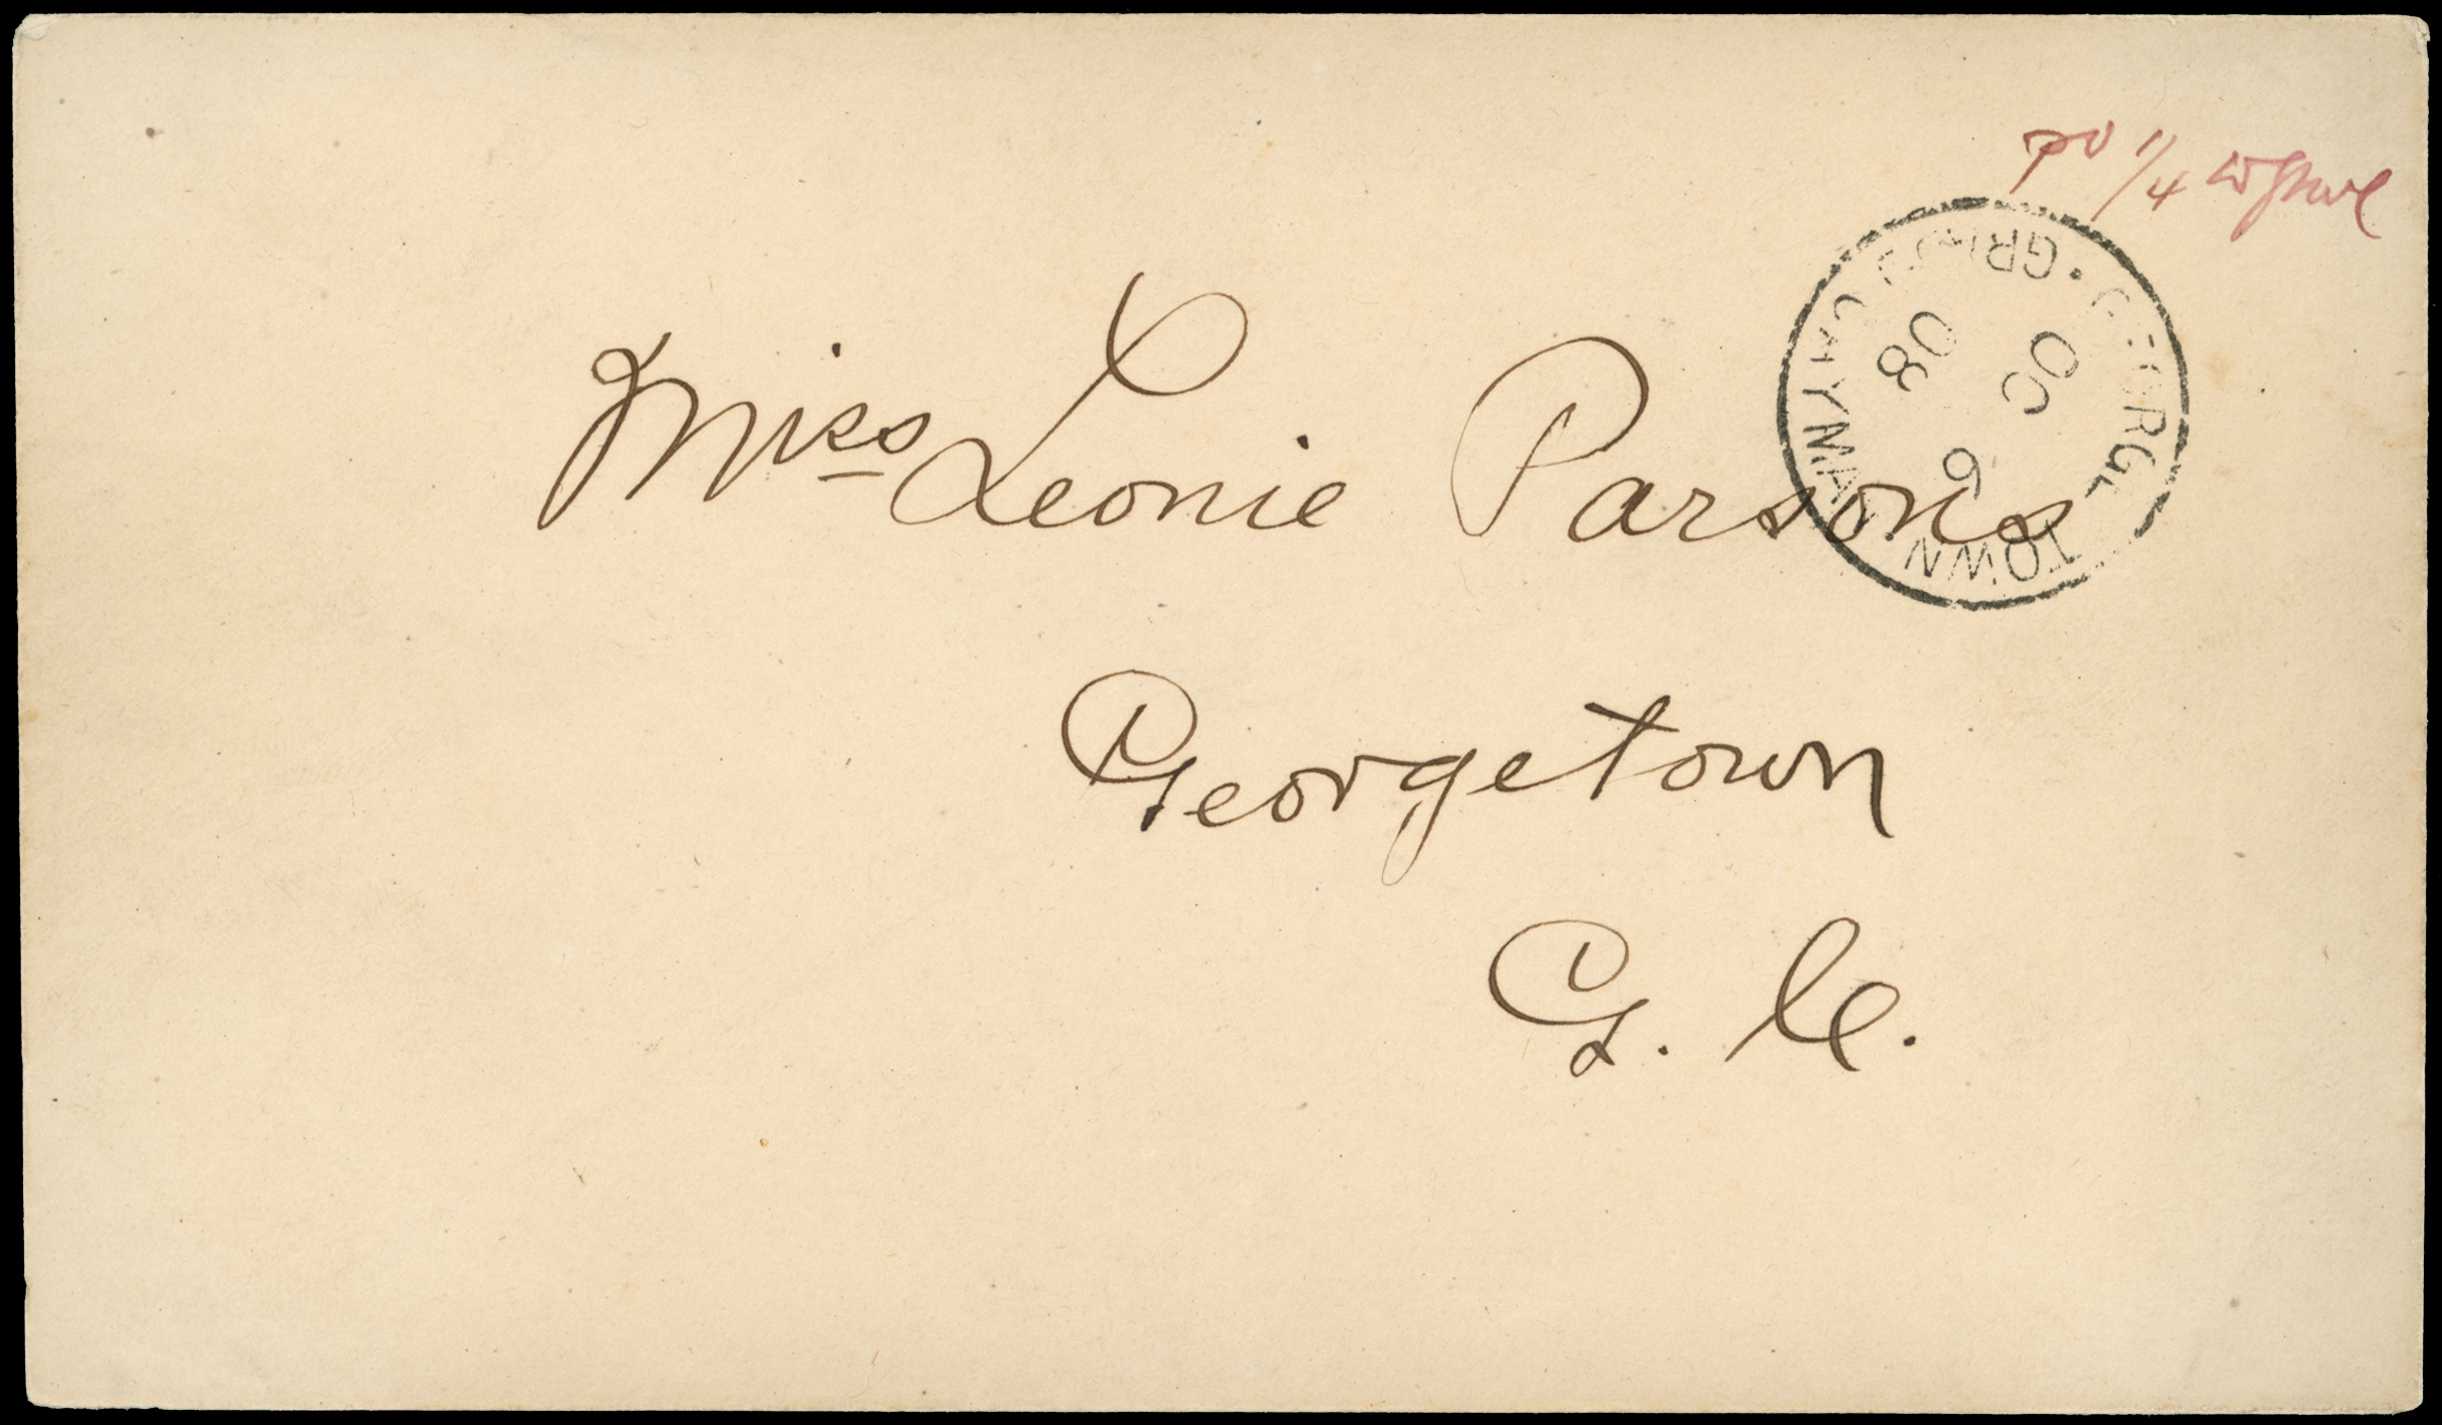 pd 1/4 wgmcc
Miss Leonie Parsons
Georgetown
G. C.
GEORGE TOWN
GRAND CAYMAN
OC 6
08